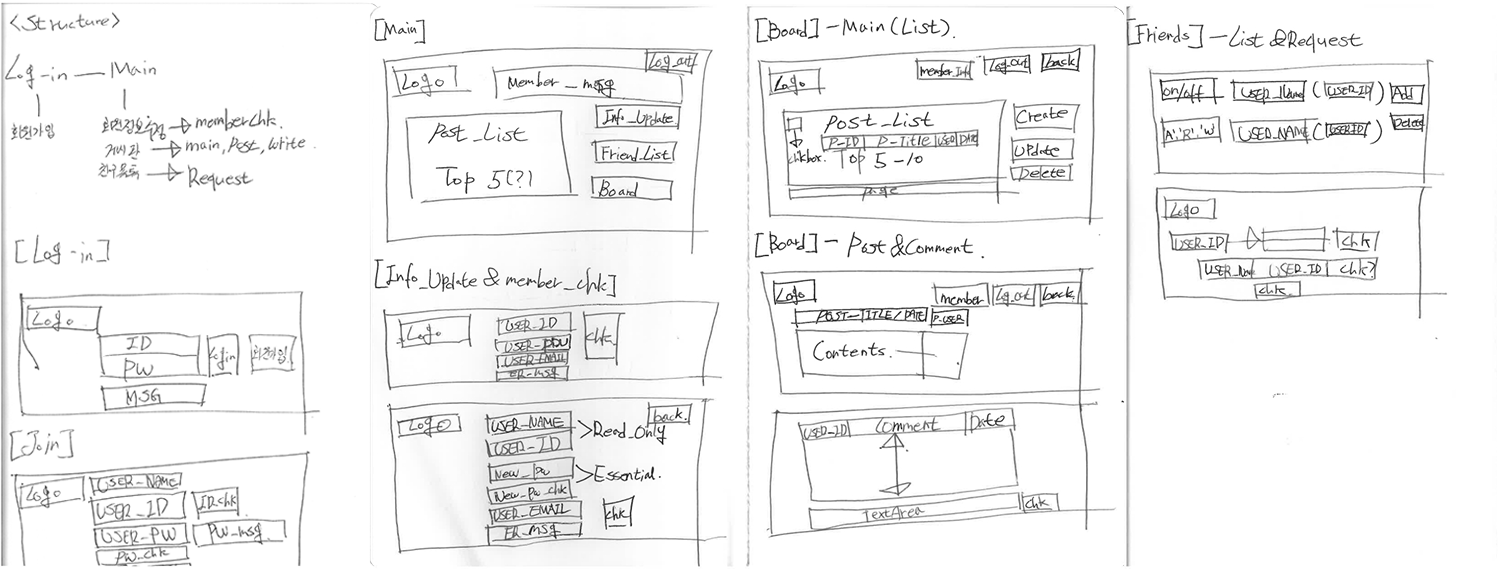 <Structure>
Log-in — Main
회원가입
회원정보수정 → memberChk.
게시판 → main, Post, write.
친구목록 → Request
[Log-in]
Logo
ID
PW
Login
회원가입
MSG
[Join]
Logo
USER_NAME
USER_ID
ID_chk
USER-PW
PW_msg
PW_chk
[Main]
Log_out
Logo
Member_msg
Post_List
Top 5(?)
Info_Update
Friend_List
Board
[Info_Update & member_chk]
Logo
USER_ID
USER-PW
USER-EMAIL
ER-msg
chk
back.
Logo
USER-NAME
>Read_Only
USER-ID
New_pw
>Essential.
New_pw_chk
USER_EMAIL
chk
ER_msg
[Board] - Main (List).
member_Info
Log_out
back
Logo
Post_List
P-ID
P-Title
USER
DATE
chkbox.
Top 5-10
page
Create
Update
Delete
[Board] - Post & Comment.
Logo
member
Log_out
back
POST-TITLE/DATE
P-USER
Contents.
USER-ID
Comment
Date
TextArea
chk
[Friends] - List & Request
on/off
USER_Name
(USER_ID)
Add
A','R','W
USER_NAME
(USERID)
Delete
Logo
USER_ID
chk
USER_Name
USER_ID
chk?
chk.